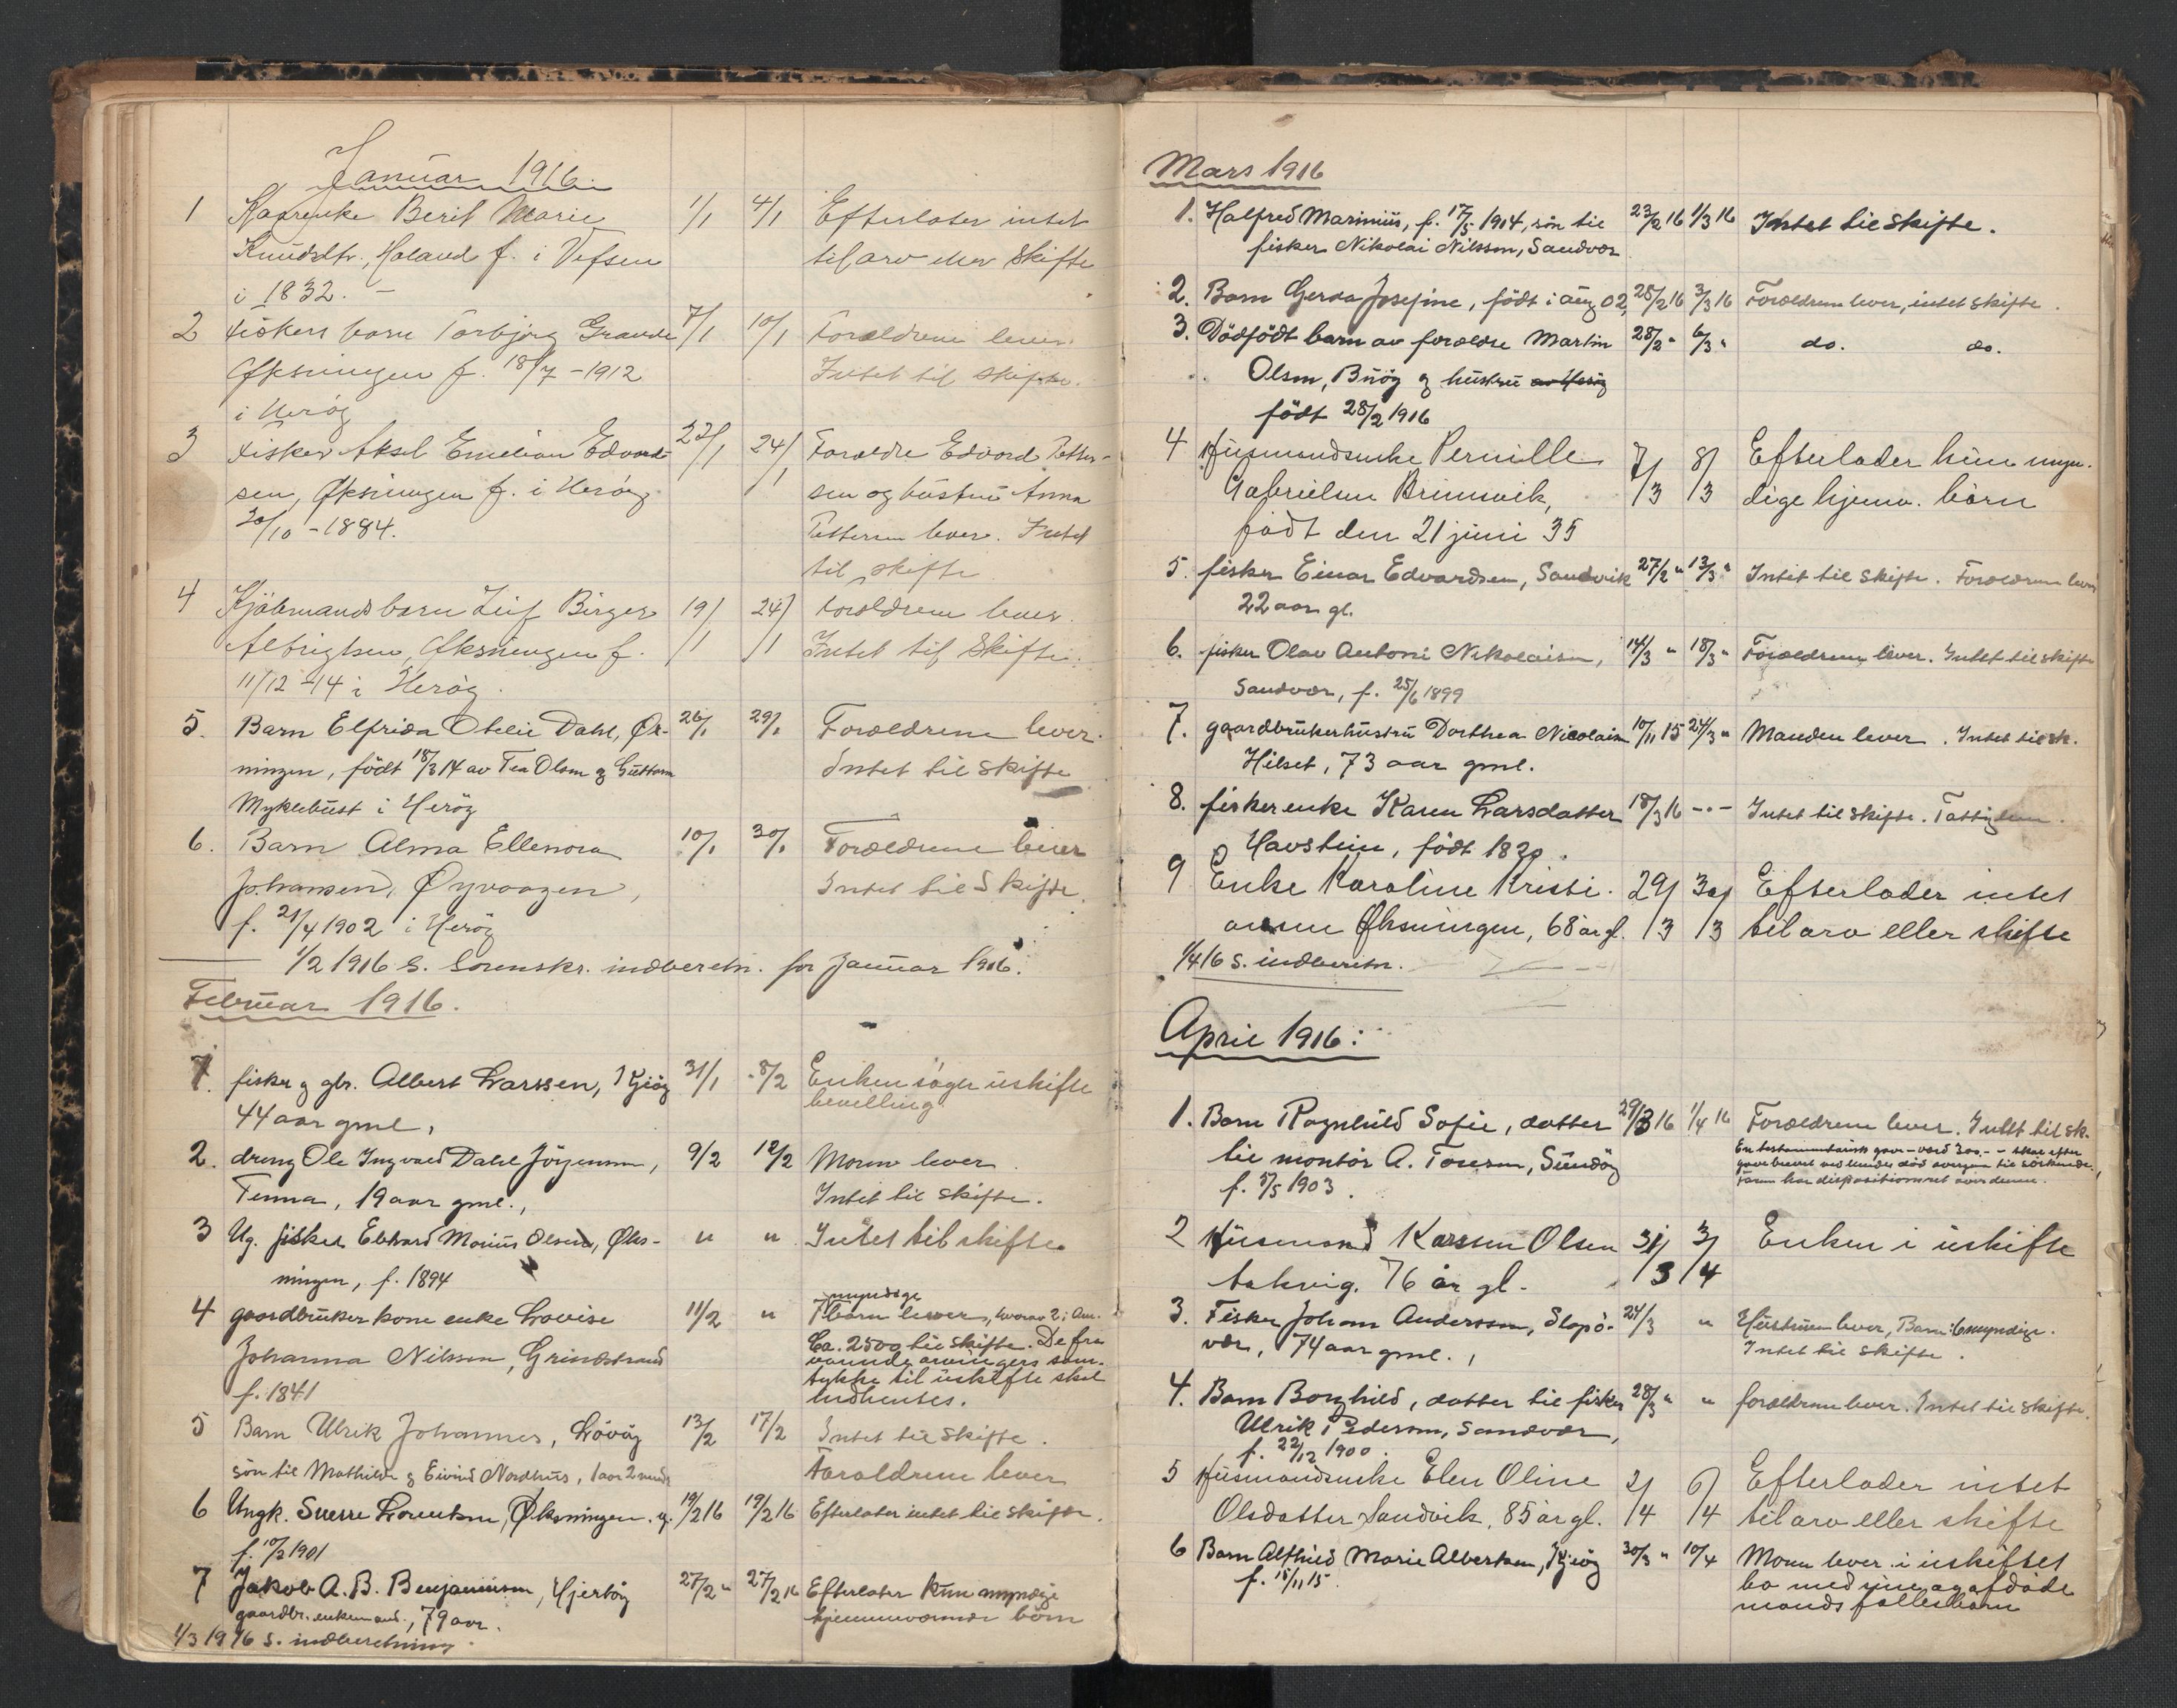 Januar 1916.
1 Kaarenke Berit Marie 1/1 4/1 Efterlater intet
Knudsdtr., Haland f. i Vefsen til arv eller Skifte
i 1832. –
2 Fiskers barn Torbjørg Grande 7/1 10/1 Forældrene lever.
Øksningen f. 18/7 – 1912 Intet til skifte.
i Herøy
3 Fisker Aksel Emilian Edvard- 22/1 24/1 Forældre Edvard Petter-
sen, Øksningen f. i Herøy sen og hustru Anna
30/10 – 1884. Pettersen lever. Intet
til skifte
4 Kjøbmandsbarn Leif Birger 19/1 24/1 Forældrene lever.
Albrigtsen, Øksningen f. Intet til Skifte.
11/12 – 14 i Herøy.
5. Barn Elfrida Otelie Dahl, Øk- 26/1 29/1 Forældrene lever.
ningen, födt 18/3 14 av Tea Olsen og Guttorm Intet til skifte
Myklebust i Heröy
6. Barn Alma Ellenora 10/1 30/1 Forældrene lever
Johansen, Øyvaagen, Intet til Skifte.
f. 21/4 1902 i Heröy
1/2 1916 s. Sorenskr. indberetn. for Januar 1916.
Februar 1916.
1. fisker g gbr. Albert Larssen, Tjöy 31/1 8/2 Enken söger uskifte
44 aar gml, bevilling
2. dreng Ole Ingvald Dahl Jörgensen, 9/2 12/2 Moren lever.
Tenna, 19 aar gml., Intet til skifte.
3 Ug. fisker Edvard Marius Olsen, Øks- " " Intet til skifte
ningen, f. 1894
4 gaardbruker kone enke Lovise 11/2 " 7 myndige barn lever, hvorav 2 i Am.
Johanna Nilssen, Grindstrand Ca. 2500 til skifte. De fra
f. 1841 værende arvingers sam-
tykke til uskifte skal
indhentes.
5 Barn Ulrik Johannes, Lövöy 13/2 17/2 Intet til skifte.
sön til Mathilde g Eivind Nordhus, 1 aar 2 mndr Forældrene lever
6 Ungk. Sverre Lorentsen, Øksningen. 19/2 16 19/2 16 Efterlater intet til skifte.
f. 10/2 1901
7 Jakob A. B. Benjaminsen, Hjertöy 27/2 " 27/2 16 Efterlater kun myndige
gaardbr. enkemand., 79 aar. hjemmeværende börn
1/3 1916 s. indberetning.
Mars 1916
1. Halfred Marinius, f. 17/5 1914, sön til 23/2 16 1/3 16 Intet til skifte.
fisker Nikolai Nilssen, Sandvær
2. Barn Gerda Josefine, födt i aug 02, 25/2 16 3/3 16 Forældrene lever, intet skifte.
3. Dödfödt barn av forældre Martin 28/2 " 6/3 " do. do.
Olsen, Buöy g hustru
födt 28/2 1916
4 Husmandsenke Pernille 7/3 8/3 Efterlader kun myn.
Gabrielsen Brinsvik, dige hjemv. börn
født den 21 juni 35
5. fisker Einar Edvardsen, Sandvik 27/2 " 13/3 " Intet til skifte. Forældrene lever
22 aar gl.
6. fisker Olav Antoni Nikolaisen, 14/3 " 18/3 " Forældrene lever. Intet til skifte
Sandvær, f. 25/6 1899
7. gaardbrukerhustru Dorthea Nicolaisen 10/11 15 24/3 " Manden lever. Intet til sk.
Hilset, 73 aar gml.
8. fisker enke Karen Larsdatter 18/3 16 – " – Intet til skifte. Fattiglem.
Havstein, födt 1820.
9 Enke Karoline Kristi- 29/3 30/3 Efterlader intet
ansen Øksningen, 68 år gl. til arv eller skifte
1/4 16 s. indberetn.
April 1916:
1. Barn Ragnhild Sofie, datter 29/3 16 1/4 16 Forældrene lever. Intet til sk.
til montör A. Tosen, Sundöy En testamentarisk gave – værd 300.– – skal efter
f. 5/5 1903. gavebrevet ved hendes död overgaa til söskende.
Faren har dispositionsret over denne.
2 Husmand Karsten Olsen 31/3 3/4 Enken i uskifte
Aakvig. 76 år gl.
3. Fisker Johan Andersson, Slapö- 24/3 " Hustruen lever, Barn: 6 myndige.
vær, 74 aar gml., Intet til skifte.
4. Barn Borghild, datter til fisker 28/3 " " forældrene lever. Intet til skifte.
Ulrik Pedersen, Sandvær,
f. 22/12 1900.
5 Husmandsenke Elen Oline 2/4 6/4 Efterlader intet
Olsdatter Sandvik, 85 år gl. til arv eller skifte
6 Barn Alfhild Marie Albertsen, Tjöy 30/3 " 10/4 Moren lever i uskiftet
f. 15/11 15. bo med sine og afdöde
mands fællesbarn